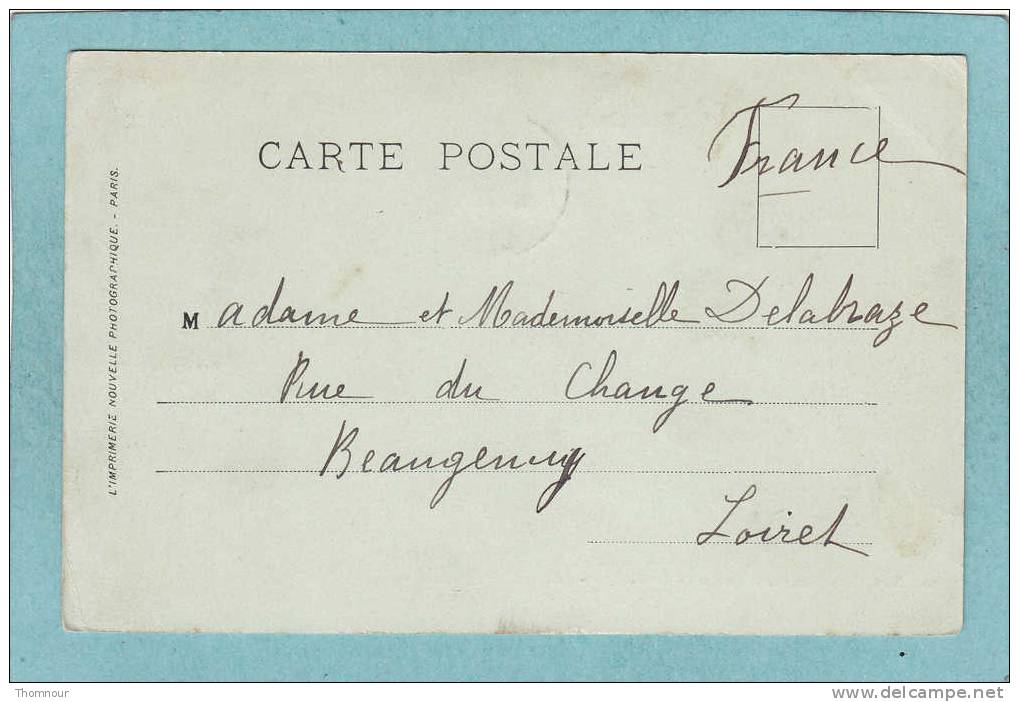 CARTE POSTALE
France
Madame et Mademoiselle Delabraze
Rue du Change
Beaugency
Loiret
L'IMPRIMERIE NOUVELLE PHOTOGRAPHIQUE. - PARIS.
Thomnour
www.delcampe.net